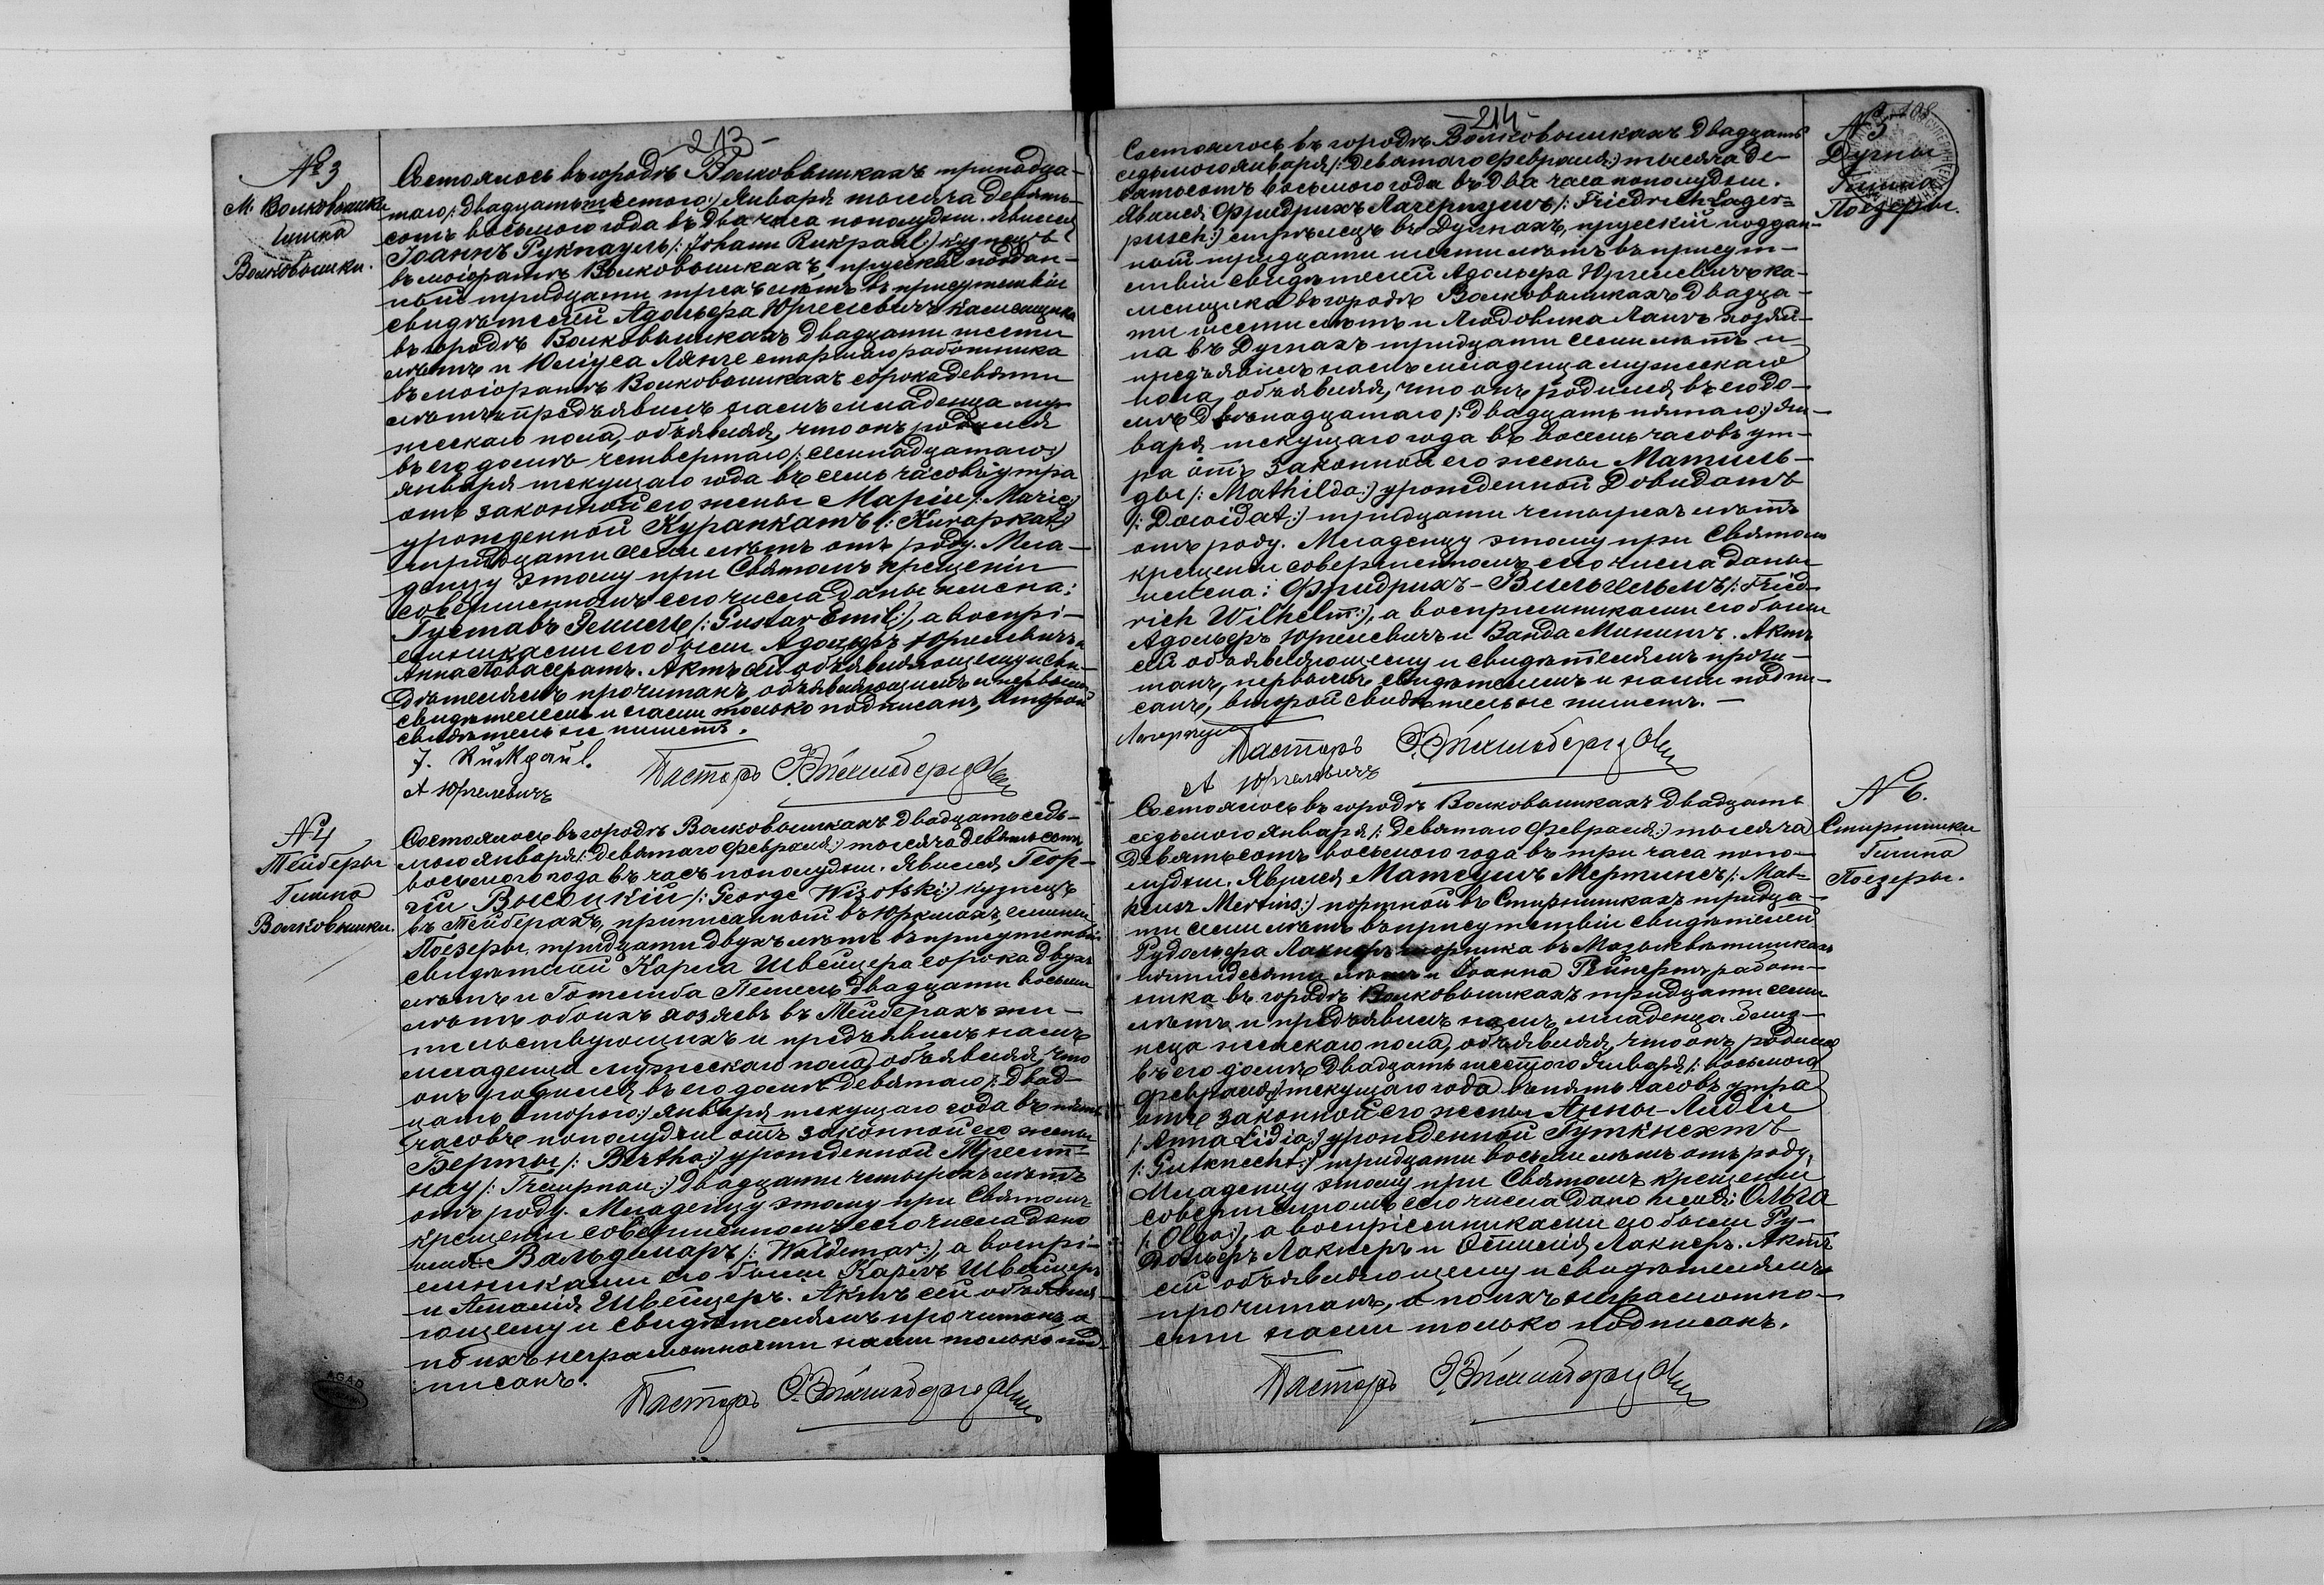 213-
№ 3
М. Волковышки
Гмина
Волковышки.
Состоялось въ городѣ Волковышкахъ тринадца-
таго /: двадцать шестого :/ Января тысяча девять-
сотъ восьмого года въ два часа пополудни. Явился
Іоаннъ Рукпауль /: Johann Rukpaul :/ кузнецъ
въ маіоратѣ Волковышкахъ, прусскій поддан-
ный тридцати трехъ лѣтъ въ присутствіи
свидѣтелей Адольфа Юргелевичъ каменщика
въ городѣ Волковышкахъ двадцати шести
лѣтъ и Юліуса Лянге старшаго работника
въ маіоратѣ Волковышкахъ сорока девяти
лѣтъ и предъявилъ намъ младенца му-
жескаго пола, объявляя, что онъ родился
въ его домѣ четвертаго /: семнадцатаго :/
января текущаго года въ семь часовъ утра
отъ законной его жены Маріи /: Marie :/
урожденной Курапкатъ /: Kurapkat :/
тридцати семи лѣтъ отъ роду. Мла-
денцу этому при Святомъ крещеніи
совершенномъ сего числа даны имена:
Густавъ Эмиль /: Gustav Emil :/, а воспрі-
емниками его были Адольфъ Юргелевичъ и
Анна . Актъ сей объявляющему и сви-
дѣтелямъ прочитанъ, объявляющимъ и первымъ
свидѣтелемъ и нами только подписанъ, второй
свидѣтель не пишетъ.
J. Rukpaul.
А Юргелевичъ
Пасторъ
№ 4
Тейберы
Гмина
Волковышки.
Состоялось въ городѣ Волковышкахъ двадцать седь-
мого января /: девятаго февраля :/ тысяча девятьсотъ
восьмого года въ часъ пополудни. Явился Геор-
гій Высоцкій /: George Wisotski :/ кузнецъ
въ Тейберахъ, приписанный въ Юркшахъ, гмины
Поезеры, тридцати двухъ лѣтъ въ присутствіи
свидѣтелей Карла Швейцера сорока двухъ
лѣтъ и Готлиба Пемель двадцати восьми
лѣтъ обоихъ хозяевъ въ Тейберахъ жи-
тельствующихъ и предъявилъ намъ
младенца мужескаго пола, объявляя, что
онъ родился въ его домѣ девятаго /: двад-
цать второго :/ января текущаго года въ пять
часовъ пополудни отъ законной его жены
Берты /: Bertha :/ урожденной
нау двадцати четырехъ лѣтъ
отъ роду. Младенцу этому при Святомъ
крещеніи совершенномъ сего числа дано
имя: Вальдемаръ /: Waldemar :/, а воспрі-
емниками его были Карлъ Швейцеръ
и Амалія Швейцеръ. Актъ сей объявля-
ющему и свидѣтелямъ прочитанъ, а
по ихъ неграмотности нами только под-
писанъ.
Пасторъ
AGAD
-214-
№ 5
Дугны
Гмина
Поезеры.
Состоялось въ городѣ Волковышкахъ двадцать
седьмого января /: девятаго февраля :/ тысяча де-
вятьсотъ восьмого года въ два часа пополудни.
Явился Фридрихъ Лагерпушъ /: Friedrich Lager-
pusch :/ стрѣлецъ въ Дугнахъ, прусскій поддан-
ный тридцати шести лѣтъ въ присут-
ствіи свидѣтелей Адольфа Юргелевичъ ка-
менщика въ городѣ Волковышкахъ двадца-
ти шести лѣтъ и Людовика Лангъ хозяи-
на въ Дугнахъ тридцати семи лѣтъ и
предъявилъ намъ младенца мужескаго
пола, объявляя, что онъ родился въ его до-
мѣ двѣнадцатаго /: двадцать пятаго :/ Ян-
варя текущаго года въ восемь часовъ ут-
ра отъ законной его жены Матиль-
ды /: Mathilda :/ урожденной Довидатъ
/: Dowidat :/ тридцати четырехъ лѣтъ
отъ роду. Младенцу этому при Святомъ
крещеніи совершенномъ сего числа даны
имена: Фридрихъ-Вильгельмъ /: Fried-
rich Wilhelm :/, а воспріемниками его были
Адольфъ Юргелевичъ и Ванда . Актъ
сей объявляющему и свидѣтелямъ прочи-
танъ, первымъ свидѣтелемъ и нами подпи-
санъ, второй свидѣтель не пишетъ.-
Лагерпуш
Пасторъ
А Юргелевичъ
№ 6.
Стиршишки
Гмина
Поезеры.
Состоялось въ городѣ Волковышкахъ двадцать
седьмого января /: девятаго февраля :/ тысяча
девятьсотъ восьмого года въ три часа попо-
лудни. Явился Матеушъ Мертинсъ /: Mat-
heusz Mertins :/ портной въ Стиршишкахъ тридца-
ти семи лѣтъ въ присутствіи свидѣтелей
Рудольфа Лакнеръ въ
пятидесяти лѣтъ и Іоанна Гейнертъ работ-
ника въ городѣ Волковышкахъ тридцати семи
лѣтъ и предъявилъ намъ младенца близ-
неца женскаго пола, объявляя, что онъ родился
въ его домѣ двадцать шестого Января /: восьмого
февраля :/ текущаго года въ пять часовъ утра
отъ законной его жены Анны-Лидіи
/: Anna Lidia :/ урожденной Гуткнехтъ
/: Gutknecht :/ тридцати восьми лѣтъ отъ роду.
Младенцу этому при Святомъ крещеніи
совершенномъ сего числа дано имя: Ольга
/: Olga :/, а воспріемниками его были Ру-
дольфъ Лакнеръ и Оттилія Лакнеръ. Актъ
сей объявляющему и свидѣтелямъ
прочитанъ, а по ихъ неграмотно-
сти нами только подписанъ.
Пасторъ